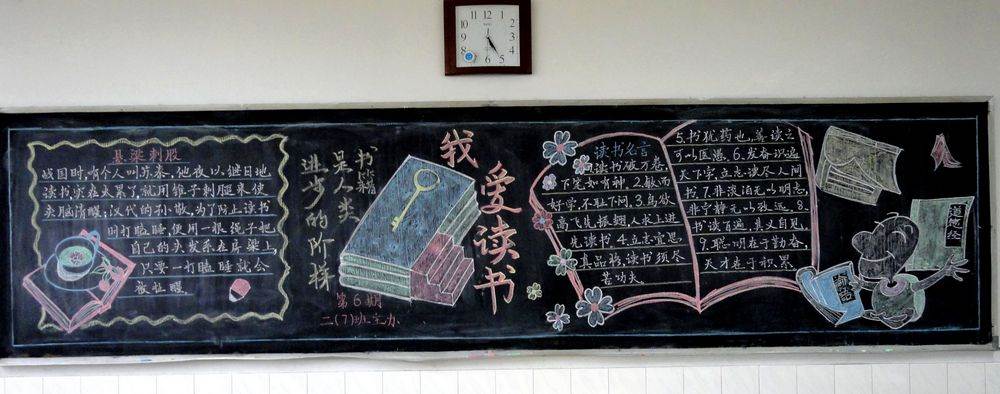 12
11
1
10
2
9
3
8
4
7
5
6
悬梁刺股
战国时,有个人叫苏秦,他夜以继日地
读书,实在太累了,就用锥子刺腿来使
头脑清醒;汉代的孙敬,为了防止读书
时打瞌睡,便用一根绳子把
自己的头发系在房梁上,
只要一打瞌睡就会
被扯醒。
书籍
是人类
进步的阶梯
我爱读书
第6期
二(7)班主办
读书名言
1.读书破万卷,
下笔如有神。2.敏而
好学,不耻下问。3.鸟欲
高飞先振翅,人求上进
先读书。4.立志宜思
真品格,读书须尽
苦功夫。
5.书犹药也,善读之
可以医愚。6.发奋识遍
天下字,立志读尽人间
书。7.非淡泊无以明志,
非宁静无以致远。8.
书读百遍,其义自见。
9.聪明在于勤奋,
天才在于积累。
道德经
论语